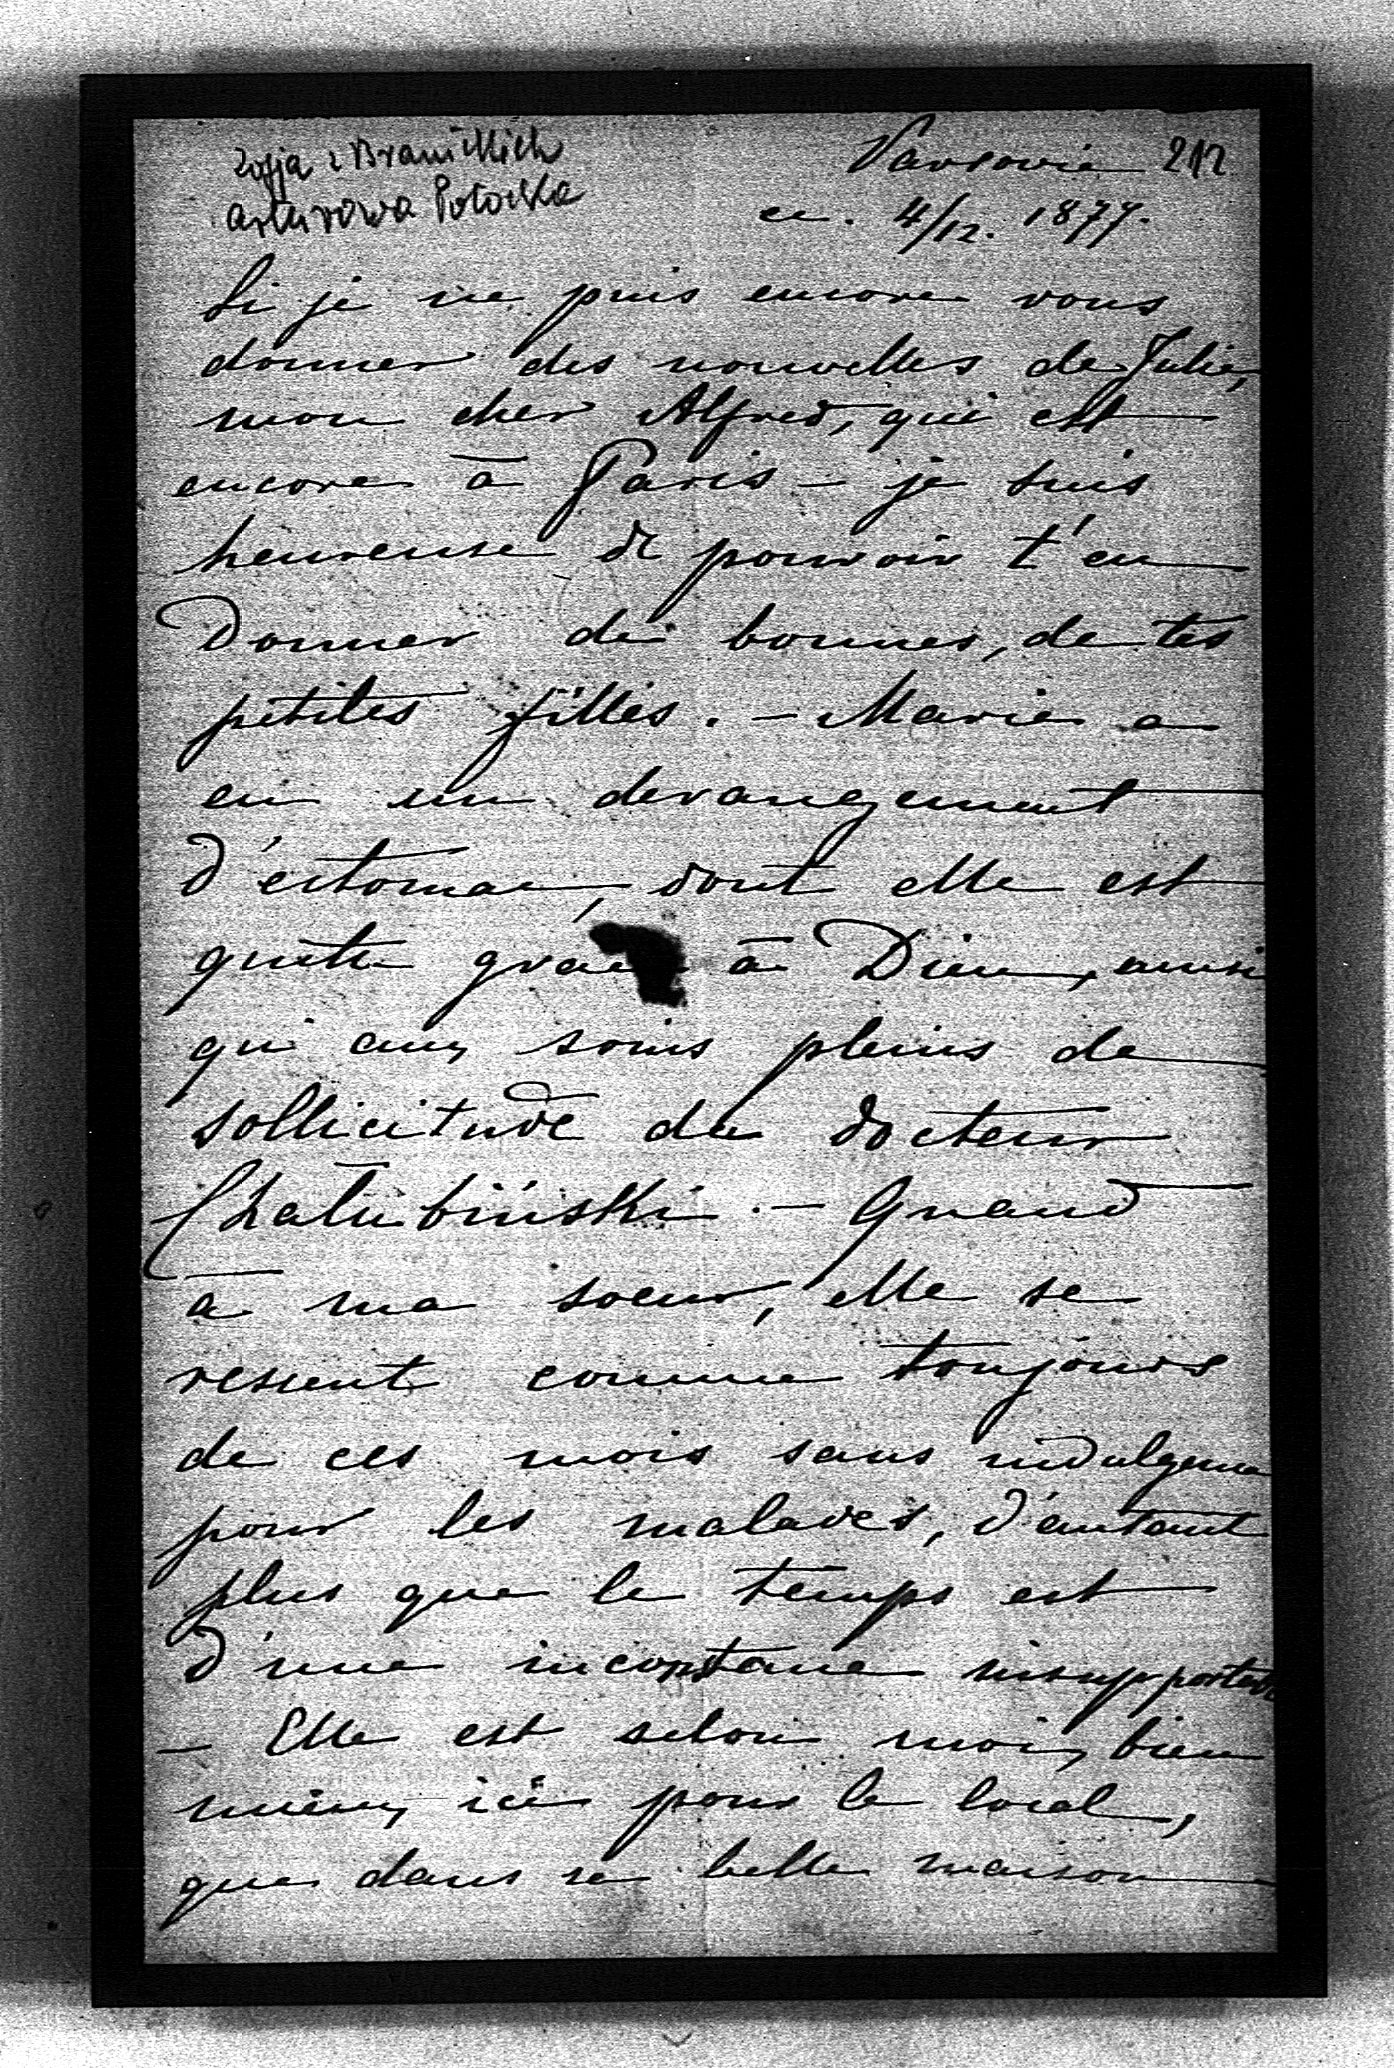 Zofja z Branickich
Arturowa Potocka
Varsovie 212
ce. 4/12. 1877.
Si je ne puis encore vous
donner des nouvelles de Julie,
mon cher Alfred, qui est
encore à Paris – je suis
heureuse de pouvoir t'en
donner de bonnes, de tes
petites filles. – Marie a
eu un derangement
d'estomac, dont elle est
quitte grace à Dieu, ainsi
qu'aux soins pleins de
sollicitude du docteur
Chałubiński. – Quand
à ma soeur, elle se
ressent comme toujours
de ces mois sans indulgence
pour les malades, d'autant
plus que le temps est
d'une inconstance insupportable
– Elle est selon moi, bien
mieux ici pour le local,
que dans sa belle maison